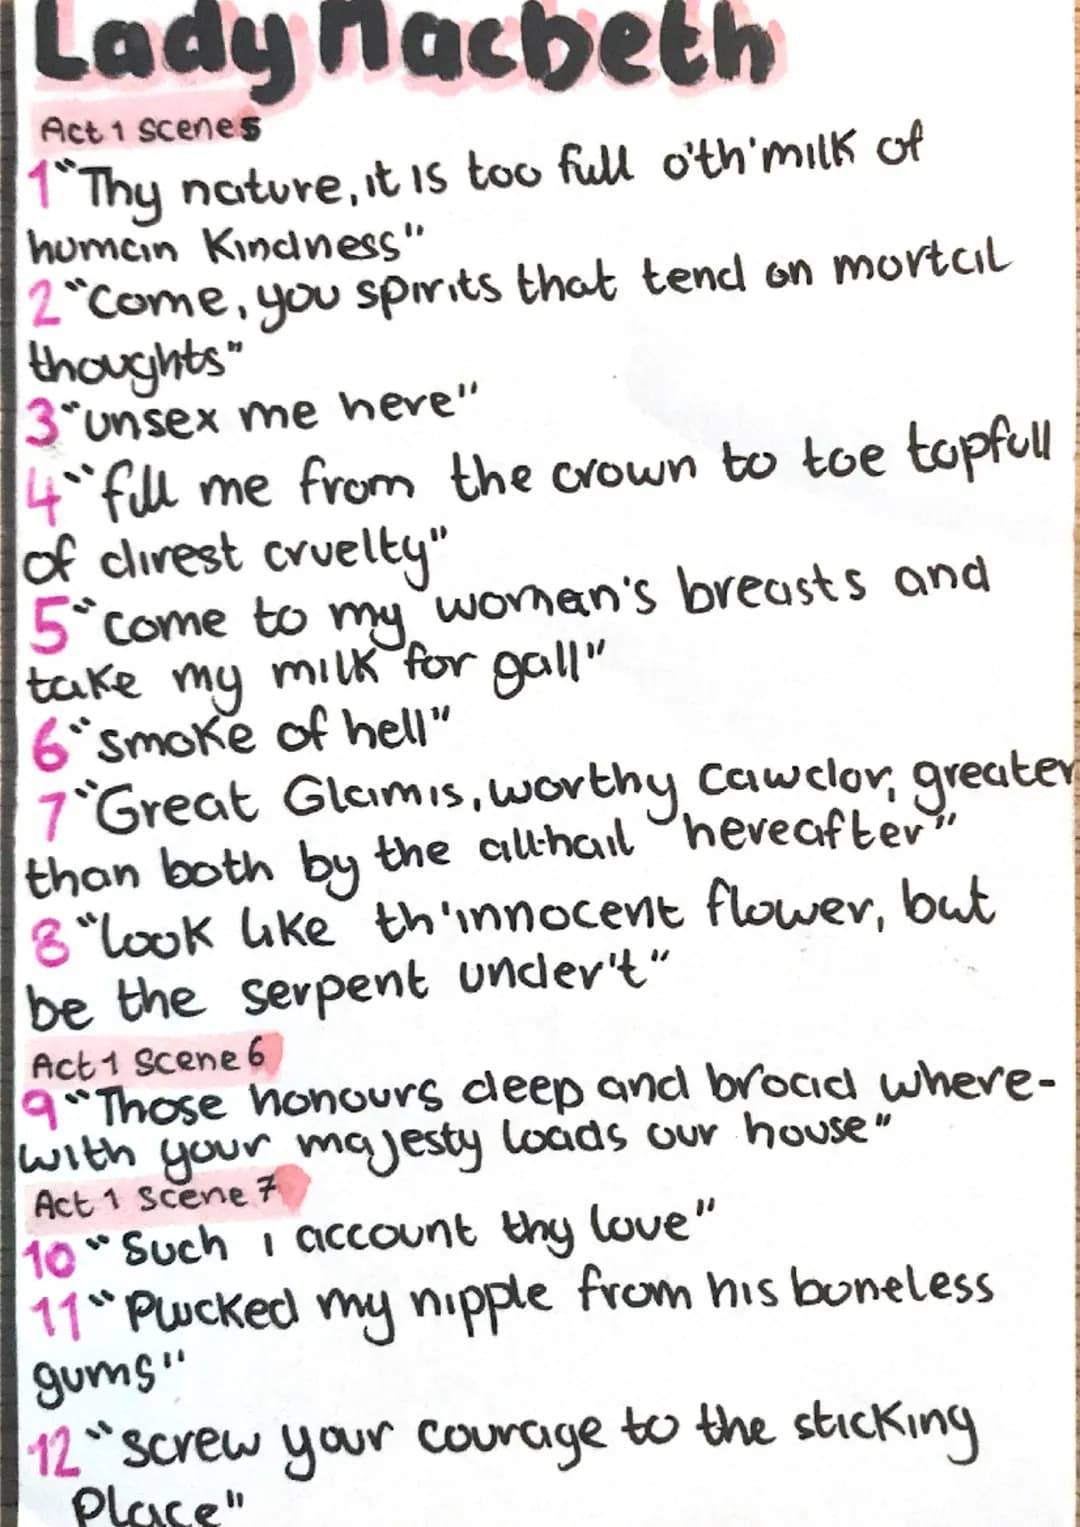 Lady Macbeth
Act 1 Scene 5
1 "Thy nature, it is too full o'th'milk of
human Kindness"
2 "Come, you spirits that tend on mortal
thoughts"
3 "unsex me here"
4 "fill me from the crown to toe topfull
of direst cruelty"
5 "come to my woman's breasts and
take my milk for gall"
6 "smoke of hell"
7 "Great Glamis, worthy Cawdor, greater
than both by the all-hail hereafter"
8 "look like th'innocent flower, but
be the serpent under't"
Act 1 Scene 6
9 "Those honours deep and broad where-
with your majesty loads our house"
Act 1 Scene 7
10 "Such I account thy love"
11 "Plucked my nipple from his boneless
gums"
12 "screw your courage to the sticking
Place"